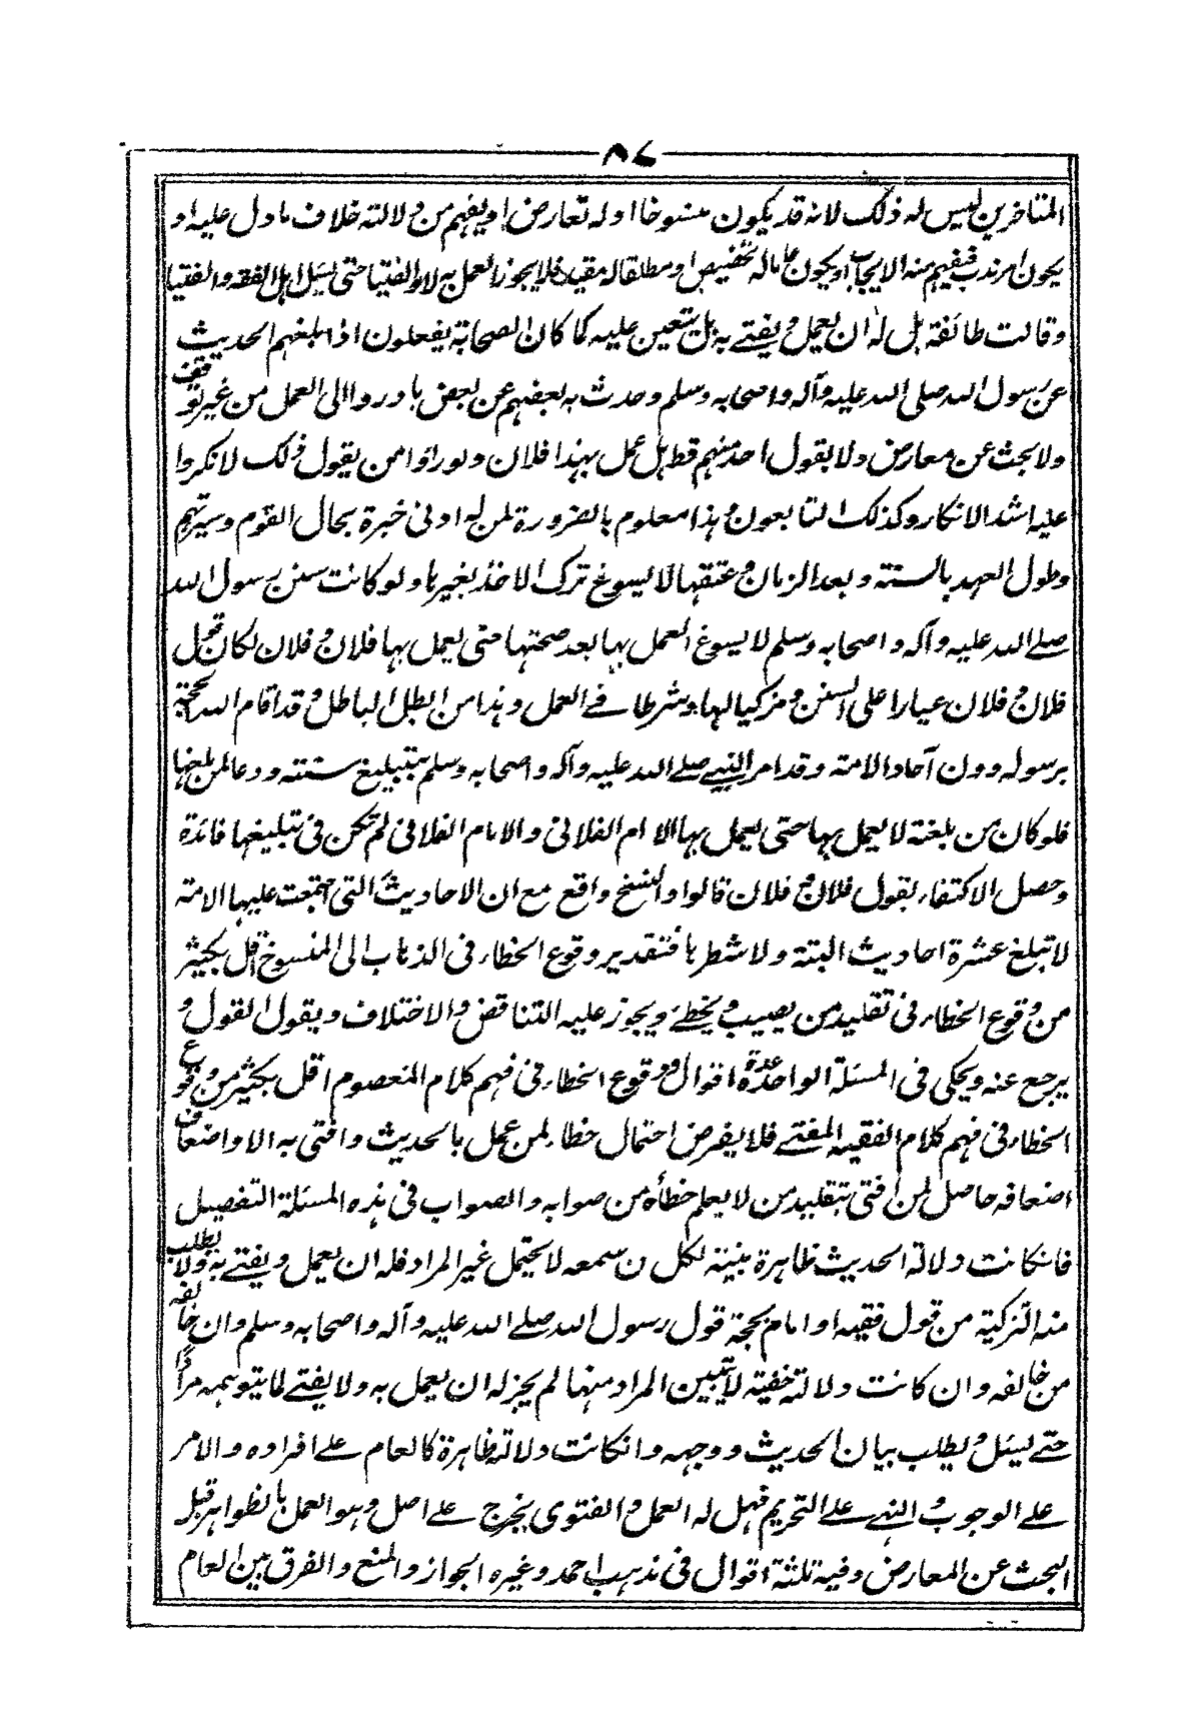 ٨٤
المتاخرين ليس له ذلك لانه قد يكون منسوخا او له تعارض او يفهم من دلالته خلاف ما دل عليه او
يكون امر ندب فيفهم منه الايجاب او يكون عاما له تخصيص او مطلقا له مقيد فلا يجوز العمل به ولا الفتيا حتى يسئل اهل الفقه والفتيا
وقالت طائفة بل له ان يعمل و يفتے به بل يتعين عليه كما كان الصحابة يفعلون اذا بلغهم الحديث
عن رسول الله صلى الله عليه وآله واصحابه وسلم وحدث به بعضهم عن بعض بادروا الى العمل من غير توقف
ولا بحث عن معارض ولا يقول احد منهم قط هل عمل بهذا فلان ولو راوا من يقول ذلك لانكروا
عليه اشد الانكار وكذلك التابعون و هذا معلوم بالضرورة لمن له ادنى خبرة بحال القوم وسيرتهم
وطول العهد بالسنة و بعد الزمان و عتقها لا يسوغ ترك الاخذ بغيرها ولو كانت سنن رسول الله
صلے الله عليه وآله واصحابه وسلم لا يسوغ العمل بها بعد صحتها حتى يعمل بها فلان و فلان لكان قول
فلان و فلان عيارا على السنن و مزكيا لها و شرطا فے العمل وهذا من ابطل الباطل و قد اقام الله الحجة
برسوله دون آحاد الامة وقد امر النبے صلے الله عليه وآله واصحابه وسلم بتبليغ سنته ودعا لمن بلغها
فلو كان من بلغته لا يعمل بها حتى يعمل بها الامام الفلانى والامام الفلانى لم تكن فى تبليغها فائدة
وحصل الاكتفاء بقول فلان و فلان قالوا والنسخ واقع مع ان الاحاديث التى اجتمعت عليها الامة
لا تبلغ عشرة احاديث البتة ولا شطرها فتقدير وقوع الخطاء فى الذهاب الى المنسوخ اقل بكثير
من وقوع الخطاء فى تقليد من يصيب ويخطے ويجوز عليه التناقض والاختلاف ويقول القول و
يرجع عنه ويحكى فى المسئلة الواحدة عدة اقوال و وقوع الخطاء فى فهم كلام المعصوم اقل بكثير من وقوع
الخطاء فى فهم كلام الفقيه المفتے فلا يفرض احتمال خطاء لمن عمل بالحديث وافتى به الا واضعاف
اضعافه حاصل لمن افتى بتقليد من لا يعلم خطأه من صوابه والصواب فى هذه المسئلة التفصيل
فانكانت دلالة الحديث ظاهرة بينة لكل من سمعه لا يحتمل غير المراد فله ان يعمل ويفتے به ولا يطلب
منه التزكية من قول فقيه او امام بحجة قول رسول الله صلے الله عليه وآله واصحابه وسلم وان خالفه
من خالفه وان كانت دلالته خفية لا يتبين المراد منها لم يجز له ان يعمل به ولا يفتے لما يتوهمه مرادا
حتے يسئل و يطلب بيان الحديث و وجهه وانكانت دلالته ظاهرة كالعام علے افراده والامر
علے الوجوب والنهے علے التحريم فهل له العمل والفتوى يخرج علے اصل وهو العمل بالظواهر قبل
البحث عن المعارض وفيه ثلثة اقوال فى مذهب احمد وغيره الجواز والمنع والفرق بين العام